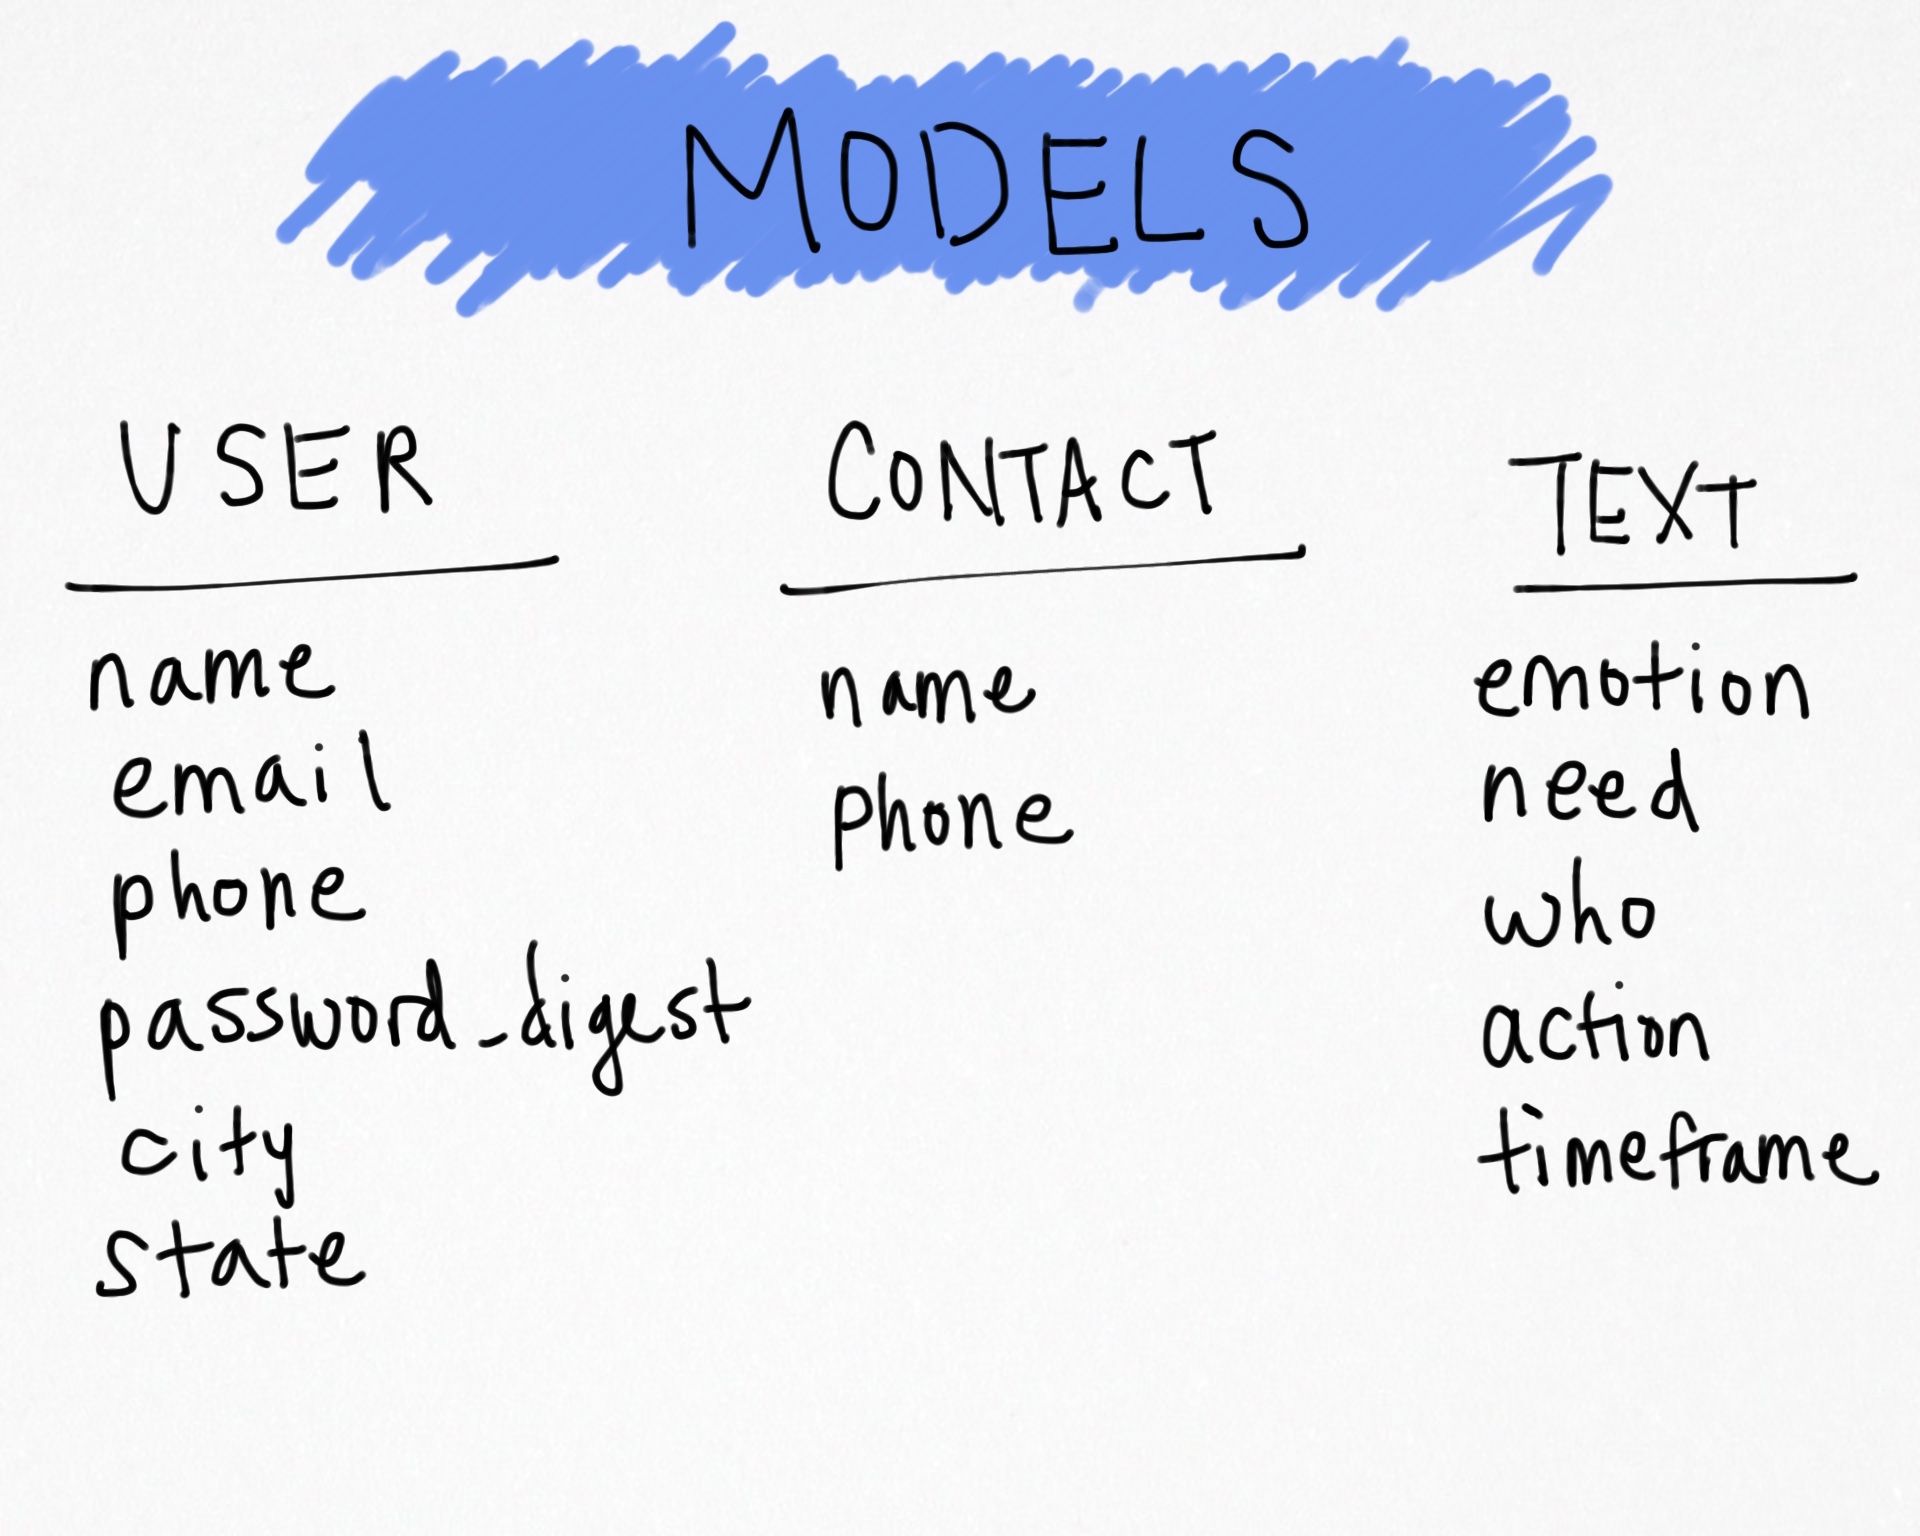 MODELS
USER
name
email
phone
password_digest
city
state
CONTACT
name
phone
TEXT
emotion
need
who
action
timeframe